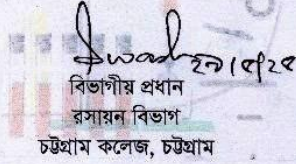 ২৯/৫/২৫
বিভাগীয় প্রধান
রসায়ন বিভাগ
চট্টগ্রাম কলেজ, চট্টগ্রাম